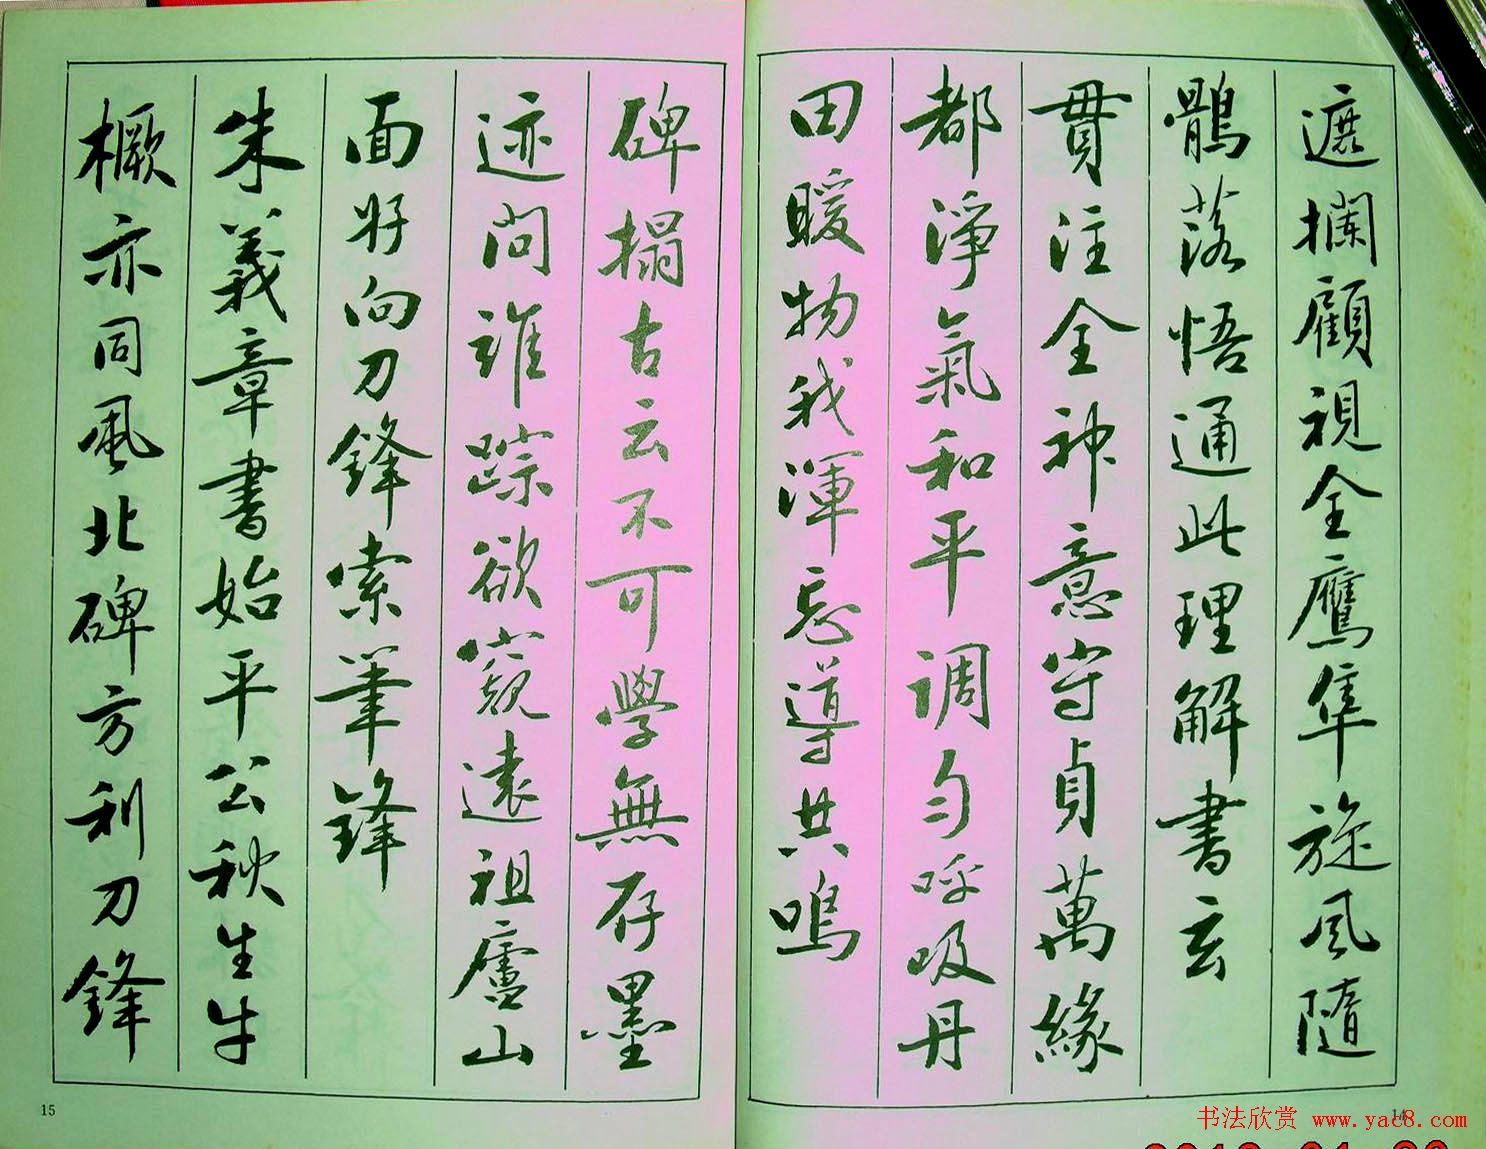 遮攔顧視全鷹隼旋風隨
鶻落悟通此理解書玄
貫注全神意守貞萬緣
都淨氣和平調勻呼吸丹
田暖物我渾忘導共鳴
碑搨古云不可學無存墨
迹問誰踪欲窺遠祖廬山
面好向刀鋒索筆鋒
朱義章書始平公秋生牛
橛亦同風北碑方利刀鋒
15
14
书法欣赏 www.yac8.com